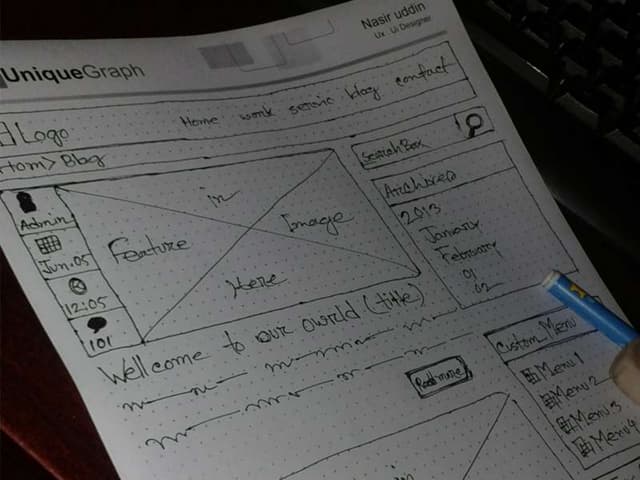 UniqueGraph
Nasir uddin
Ux Ui Designer
Logo
Home work servic blog contact
Hom> Blog
Search Box
Admin
Jun.05
12:05
101
Feature in Image Here
Archives
2013
January
February
01
02
Wellcome to our owrld (title)
Read more
Custom Menu
Menu 1
Menu 2
Menu 3
Menu 4